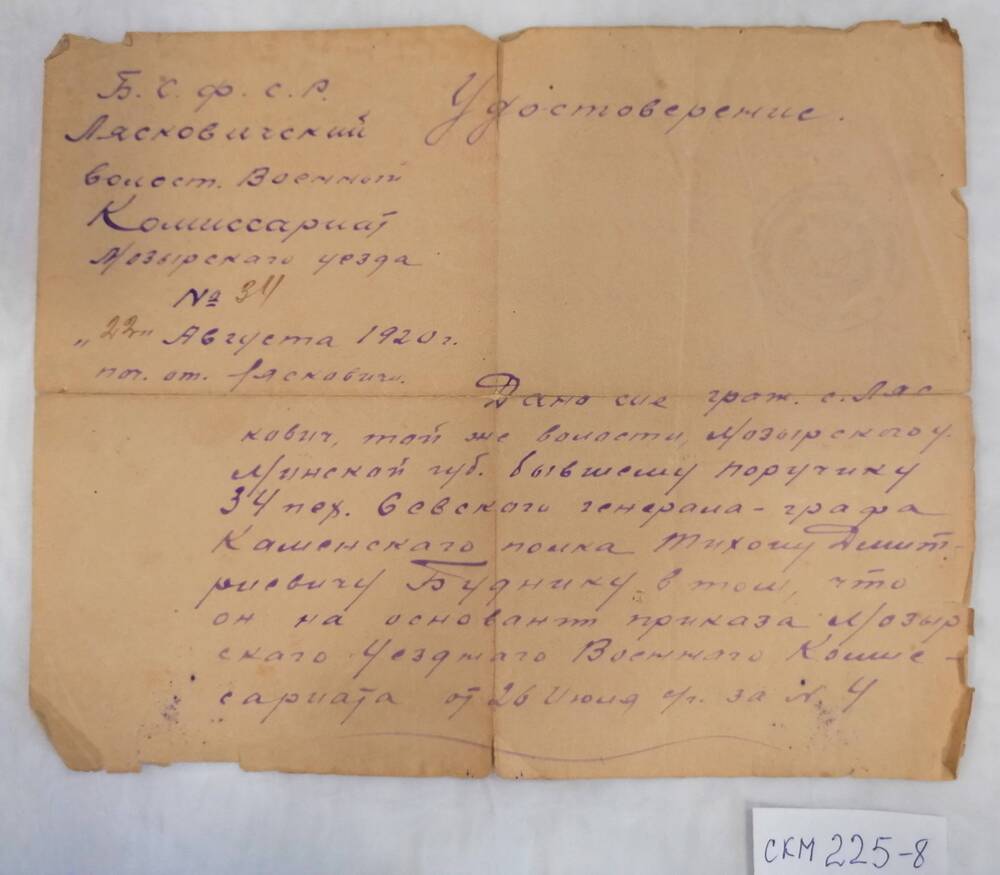 Б. С. Ф. С. Р.
Лясковичский
волост. Военный
Комиссариат
Мозырского уезда
№ 34
„22" Августа 1920 г.
поч. от. Лясковичи.
Удостоверение.
Дано сие граж. с. Ляс
кович, той же волости, Мозырского у.
Минской губ. бывшему поручику
34 пех. Севского генерала-графа
Каменскаго полка Тихону Дмит-
риевичу Буднику в том, что
он на основании приказа Мозыр
скаго Уезднаго Военнаго Комис-
сариата от 26 Июля с/г. за № 4
СКМ 225-8